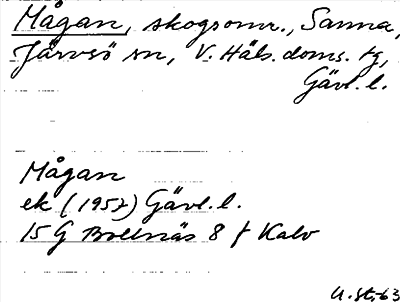 Mågan, skogsomr., Sanna,
Järvsö sn, V. Häls. doms. tg,
Gävl. l.
Mågan
ek (1952) Gävl. l.
15 G Bollnäs 8 f Kalv
U. St. 63